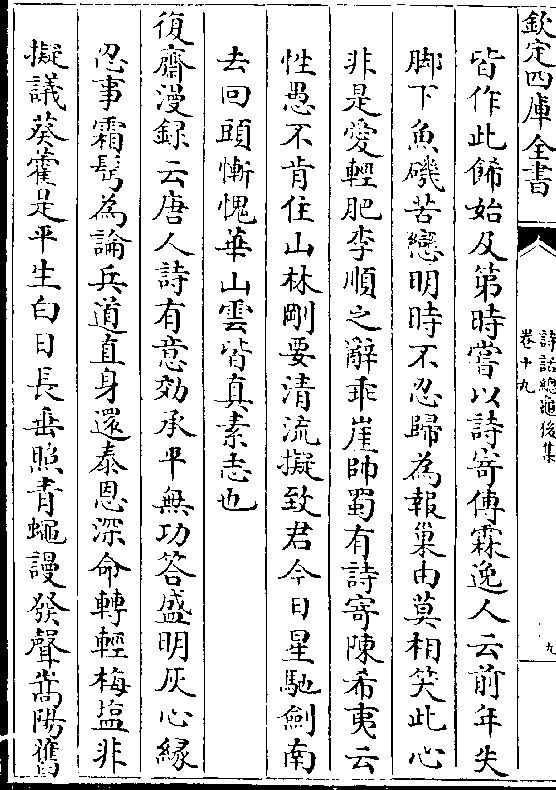 欽定四庫全書
詩話總龜後集
卷十九
九
皆作此餙始及第時嘗以詩寄傅霖逸人云前年失
脚下魚磯苦戀明時不忍歸為報巢由莫相笑此心
非是愛輕肥李順之辭乖崖帥蜀有詩寄陳希夷云
性愚不肯住山林剛要清流擬致君今日星馳劍南
去回頭慚愧華山雲皆真素志也
復齋漫録云唐人詩有意効承平無功答盛明灰心緣
忍事霜髩為論兵道直身還泰恩深命轉輕梅塩非
擬議葵藿是平生白日長垂照青蠅謾發聲嵩陽舊